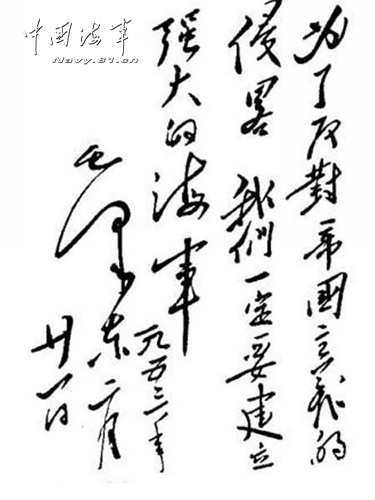 中国海军
Navy.81.cn
为了反對帝國主義的
侵畧 我們一定要建立
强大的海軍
毛泽东
一九五三年
二月
廿一日